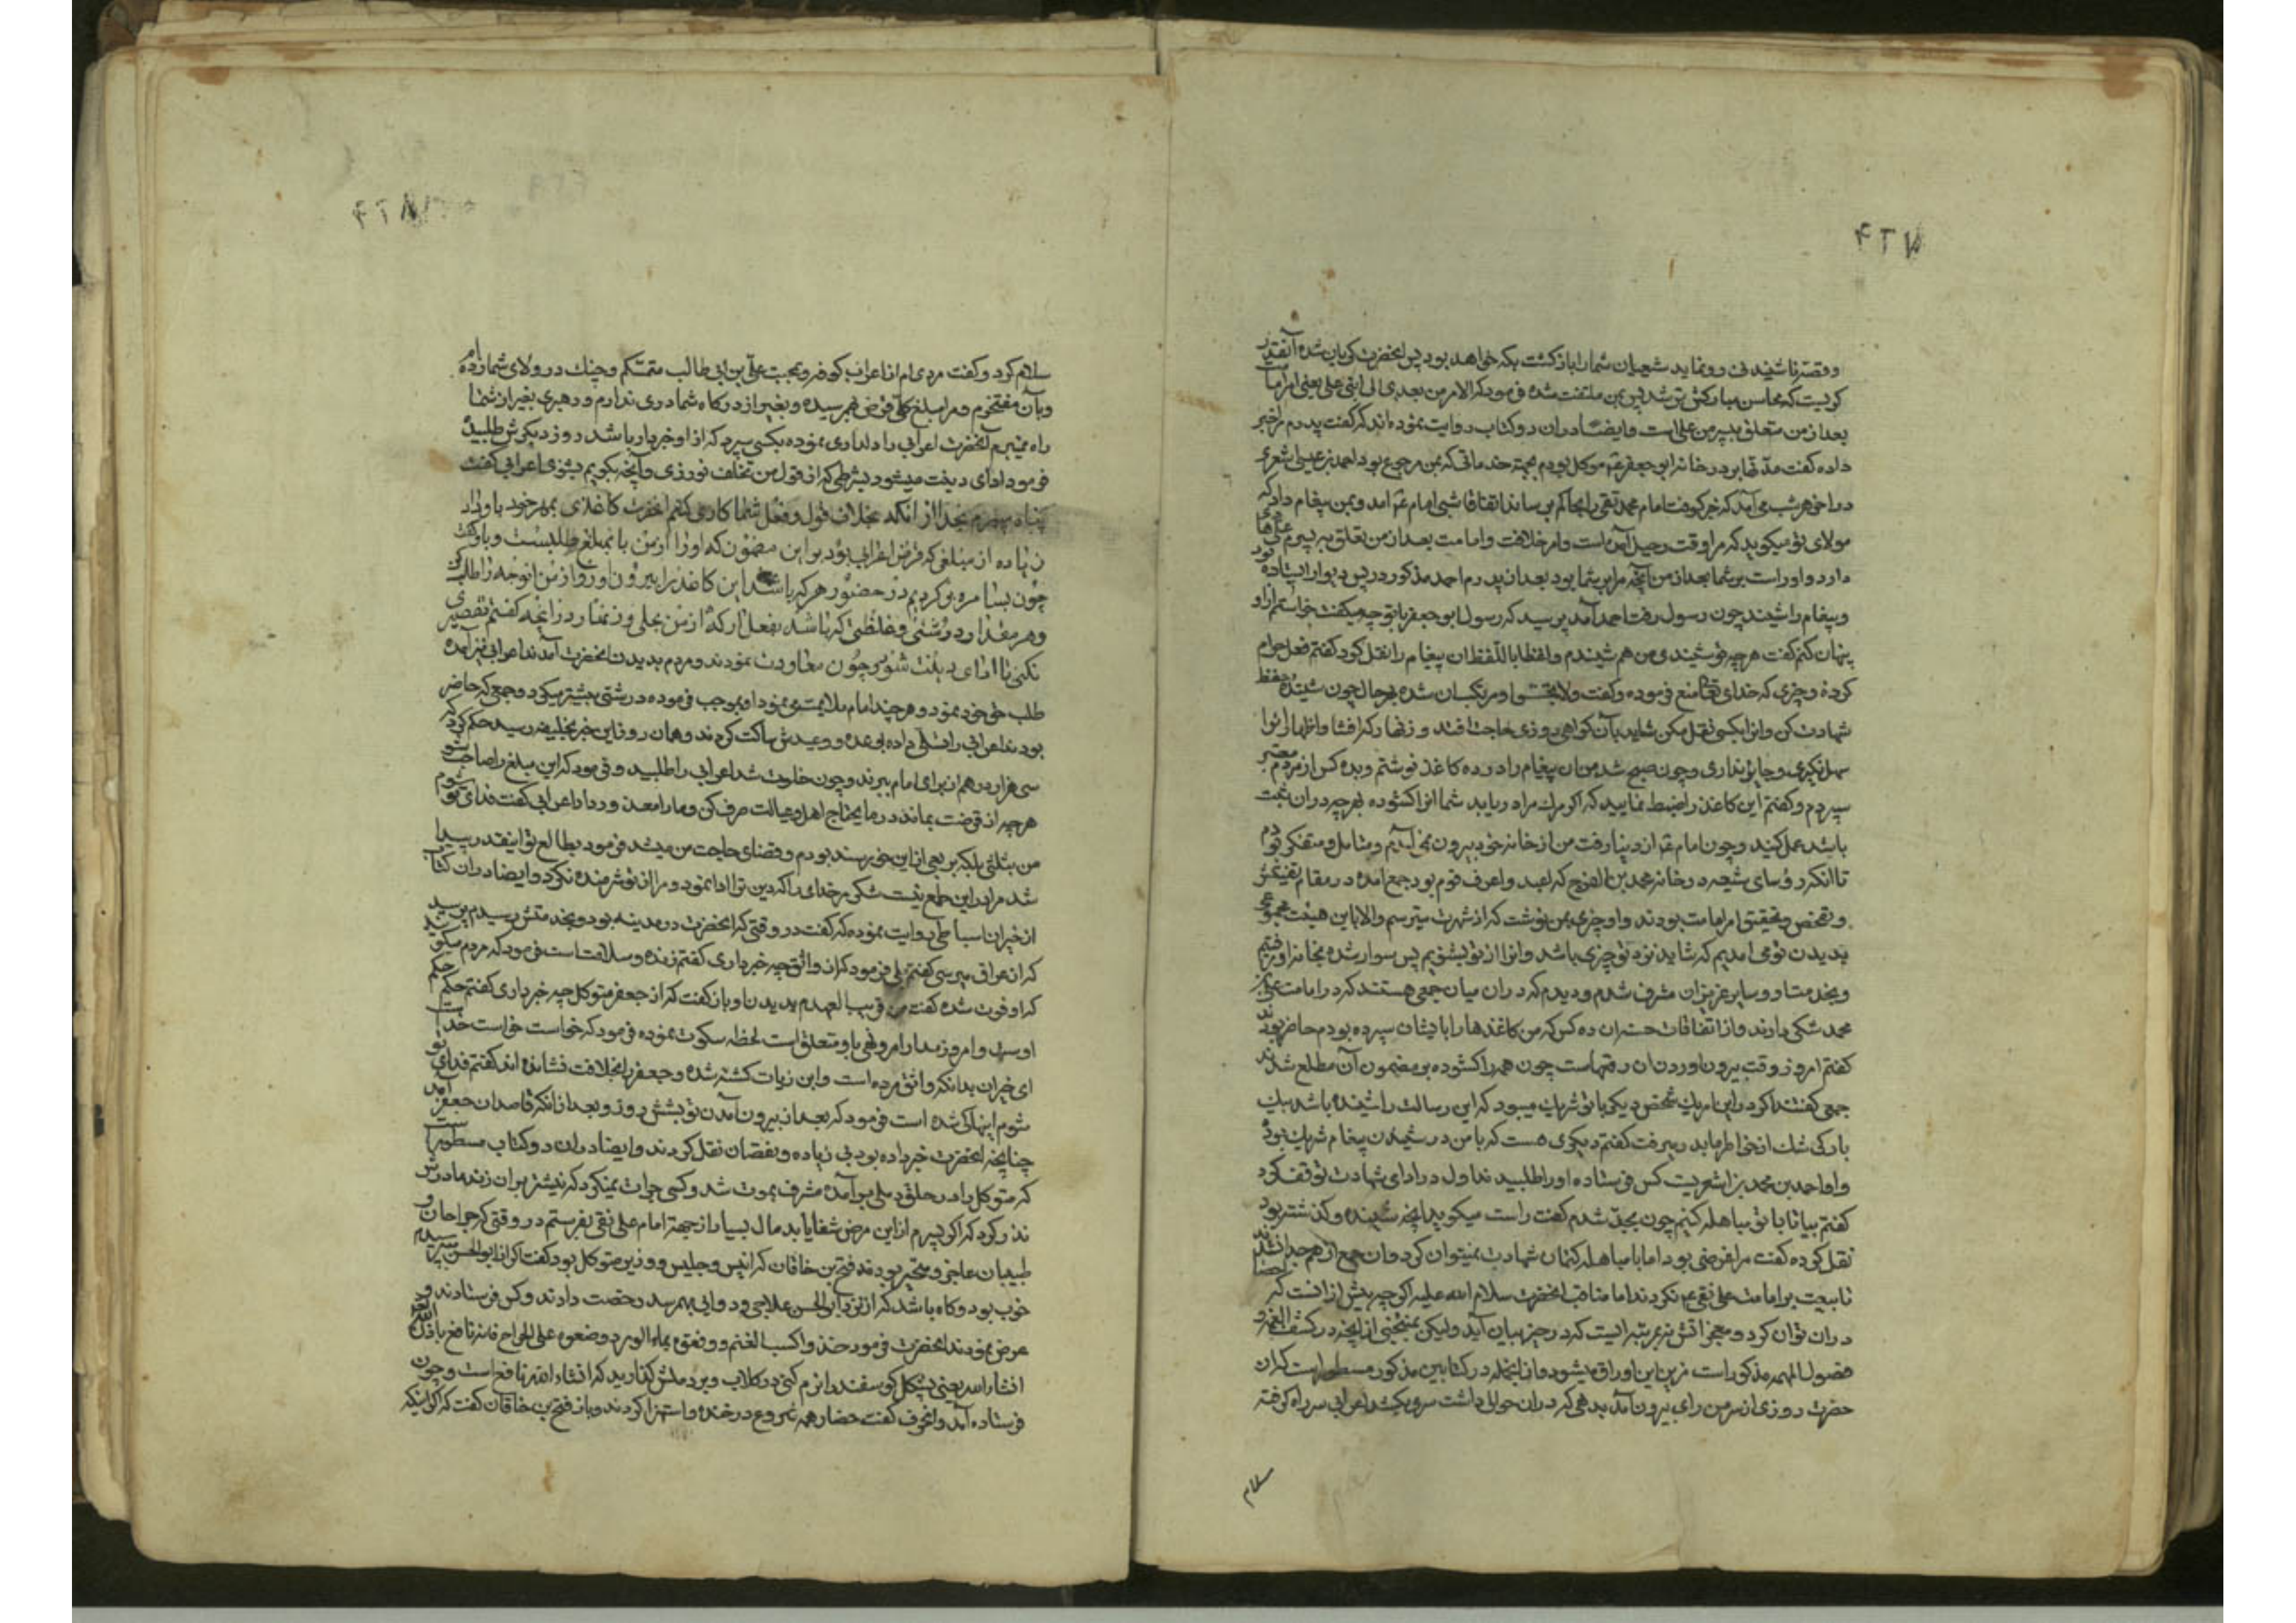 ۴۲۷
و قصه ناشیند فی رو و نماید شیعیان شما را بازگشت بکه خواهد بود پس آنحضرت گریان شده آنقدر
گریست که محاسن مبارکش تر شد پس بمن ملتفت شده فرمود که الامر من بعدی الی ابنی علی یعنی امر امامت
بعد از من متعلق به پسر من علی است و ایضا در ان دو کتاب روایت نموده اند که گفت پدرم مرا خبر
داده گفت مدتها بر در خانه ابو جعفر ع م موکل بودم بجهته خدماتی که بمن مرجوع بود احمد بن عیسی اشعری
در اخر هر شب می آمد که خبر کوفت امام محمد تقی را بحاکم برساند اتفاقا شبی امام ع م آمد و بمن پیغام داد که
مولای تو میگوید که مرا وقت رحیل است و امر خلافت و امامت بعد از من تعلق به پسرم علی
دارد و او راست بر شما بعد از من آنچه مرا بر شما بود بعد از پدرم احمد مذکور در پس دیوار ایستاده بود
و پیغام را شنید چون رسول رفت احمد آمد پرسید که رسول ابو جعفر با تو چه میگفت خواستم از او
پنهان کنم گفت هر چه تو شنیدی من هم شنیدم و لفظا باللفظ ان پیغام را نقل کرد گفتم فعل حرام
کرده و چیزی که خدای تعالی منع فرموده و گفت ولا تجسسوا مرتکب ان شده بهر حال چون شنیده حفظ
شهادت کن و انرا بکسی نقل مکن شاید بآن گواهی روزی حاجت افتد و زنهار که افشا و اظهار انرا
سهل نگیری و جایز نداری و چون صبح شد من ان پیغام را در ده کاغذ نوشتم و بده کس از مردم معتبر
سپردم و گفتم این کاغذ را ضبط نمایید که اگر مرگ مرا دریابد شما انرا گشوده بهر چه در ان ثبت
باشد عمل کنید و چون امام ع م از دنیا رفت من از خانه خود بیرون نمی آمدم و متامل و متفکر بودم
تا آنکه رؤسای شیعه در خانه محمد بن الفرج که اعبد و اعرف قوم بود جمع آمده در مقام تفتیش
و تفحص و تحقیق امر امامت بودند و او چیزی بمن نوشت که از شهرت میترسم والا باین هیئت مجموعی
بدیدن تو می آمدیم که شاید نزد تو چیزی باشد و انرا از تو بشنویم پس سوار شده بخانه او رفتم
و بخدمت او و سایر عزیزان مشرف شدم و دیدم که در ان میان جمعی هستند که در امامت علی بن
محمد شکی دارند و از اتفاقات حسنه ان ده کس که من کاغذها را بایشان سپرده بودم حاضر بودند
گفتم امروز وقت بیرون آوردن ان رقمهاست چون همه را گشوده بر مضمون آن مطلع شدند
جمعی گفتند اگر در این امر یک شخص دیگر با تو شریک میبود که این رسالت را شنیده باشد بیک
بارگی شک از خاطرها بدر میرفت گفتم دیگری هست که با من در شنیدن پیغام شریک بوده
و او احمد بن محمد بن اشعریست کس فرستاده او را طلبیدند اول در ادای شهادت توقف کرد
گفتم بیا تا با تو مباهله کنیم چون بجد شدم گفت راست میگوید آنچه شنیده و گذشته بود
نقل کرده گفت مرا غرضی بود اما با مباهله کتمان شهادت نمیتوان کرد و ان جمع از هم جدا نشدند
تا بیعت بر امامت علی نقی ع م نکردند اما مناقب آنحضرت سلام الله علیه اگر چه بیش از انست که
در ان توان کرد و معجزاتش نه بمرتبه ایست که در حیز بیان آید ولیکن بمنتخبی از انچه در کشف الغمه و
فصول المهمه مذکور است مزین این اوراق میشود و از انجمله در کتابین مذکور مسطور است که ان
حضرت روزی از سر من رای بیرون آمد بدهی که در ان حوالی داشت میرو یک شد اعرابی سر راه گرفته
سلام
۴۲۸
سلام کرد و گفت مردی ام از اعراب کوفه و بمحبت علی بن ابی طالب متمسکم و چنگ در ولای شما زده ام
و بآن مفتخرم و مرا مبلغ کلی قرض بهم رسیده و بغیر از درگاه شما دری ندارم و رهبری بغیر از شما
راه نمیبرم آنحضرت اعرابی را دلداری نموده بکسی سپرد که از او خبردار باشد روز دیگرش طلبیده
فرمود ادای دینت میشود بشرطی که از قول من تخلف نورزی و آنچه بگویم بشنوی اعرابی گفت
پناه میبرم بخدا از انکه بخلاف قول و فعل شما کاری کنم آنحضرت کاغذی بمهر خود باو داد
زیاده از مبلغی که قرض اعرابی بود بر این مضمون که او را از من با نمبلغ طلبست و باو گفت
چون بسامره برگردیم در حضور هر که باشد این کاغذ را بیرون آور و از من آنوجه را طلب کن
و هر مقدار درشتی و غلظتی که باشد بفعل آر که از من بحلی و زنهار در آنچه گفتم تقصیری
نکنی تا ادای دینت شود چون معاودت نمودند و مردم بدیدن آنحضرت آمدند اعرابی نیز آمده
طلب حق خود نمود و هر چند امام ملایمت مینمود او بموجب فرموده درشتی بیشتر میکرد و جمعی که حاضر
بودند اعرابی را تسلی داده بوعده و وعیدش ساکت کردند و همان روز این خبر بخلیفه رسید حکم کرد که
سی هزار درهم از برای امام ببرند و چون خلوت شد اعرابی را طلبید و فرمود که این مبلغ را صاحب شو
هر چه از قرضت بماند در مایحتاج اهل و عیالت صرف کن و ما را معذور دار اعرابی گفت فدای تو شوم
من بثلثی بلکه بربعی از این خرسند بودم و قضای حاجت من میشد فرمود بطالع تو اینقدر پیدا
شد مرا در این طمع نیست شکر مر خدای را که دین ترا ادا نمود و مرا از تو شرمنده نکرد و ایضا در ان کتاب
از خیران اسباطی روایت نموده که گفت در وقتی که آنحضرت در مدینه بود بخدمتش رسیدم پرسید
که از عراق میرسی گفتم بلی فرمود که از واثق چه خبر داری گفتم زنده و سلامت است فرمود که مردم میگویند
که او فوت شده گفت من قریب العهدم بدیدن او باز گفت که از جعفر متوکل چه خبر داری گفتم حکم حکم
اوست و امروز مدار امر و نهی باو متعلق است لحظه سکوت نموده فرمود که خواست خواست خداست
ای خیران بدانکه واثق مرده است و ابن زیات کشته شده و جعفر را بخلافت نشانده اند گفتم فدای تو
شوم اینها کی شده است فرمود که بعد از بیرون آمدن تو بشش روز و بعد از انکه قاصدان جعفر آمدند
چنانچه آنحضرت خبر داده بود بی زیاده و نقصان نقل کردند و ایضا در ان دو کتاب مسطور است
که متوکل را در حلق دملی بر آمده مشرف بموت شد و کسی جرات نمیکرد که نیشتر بر ان زند مادرش
نذر کرد که اگر پسرم از این مرض شفا یابد مال بسیار از جهة امام علی نقی بفرستم در وقتی که جراحان و
طبیبان عاجز و متحیر بودند فتح بن خاقان که انیس و جلیس و وزیر متوکل بود گفت اگر از ابوالحسن پرسیدم
خوب بود و گاه باشد که از نزد ابوالحسن علاجی و دوایی بهم رسد رخصت دادند و کس فرستادند و
عرض نمودند آنحضرت فرمود خذوا کسب الغنم و دفقوه بماء الورد وضعوه علی الجراح فانه نافع باذن الله
انشاء الله یعنی پشکل گوسفند را نرم کنی در گلاب و بر دملش گذارید که انشاء الله نافع است و چون
فرستاده آمد و انحرف گفت حضار همه شروع در خنده و استهزا کردند و باز فتح بن خاقان گفت که اگر اینکه